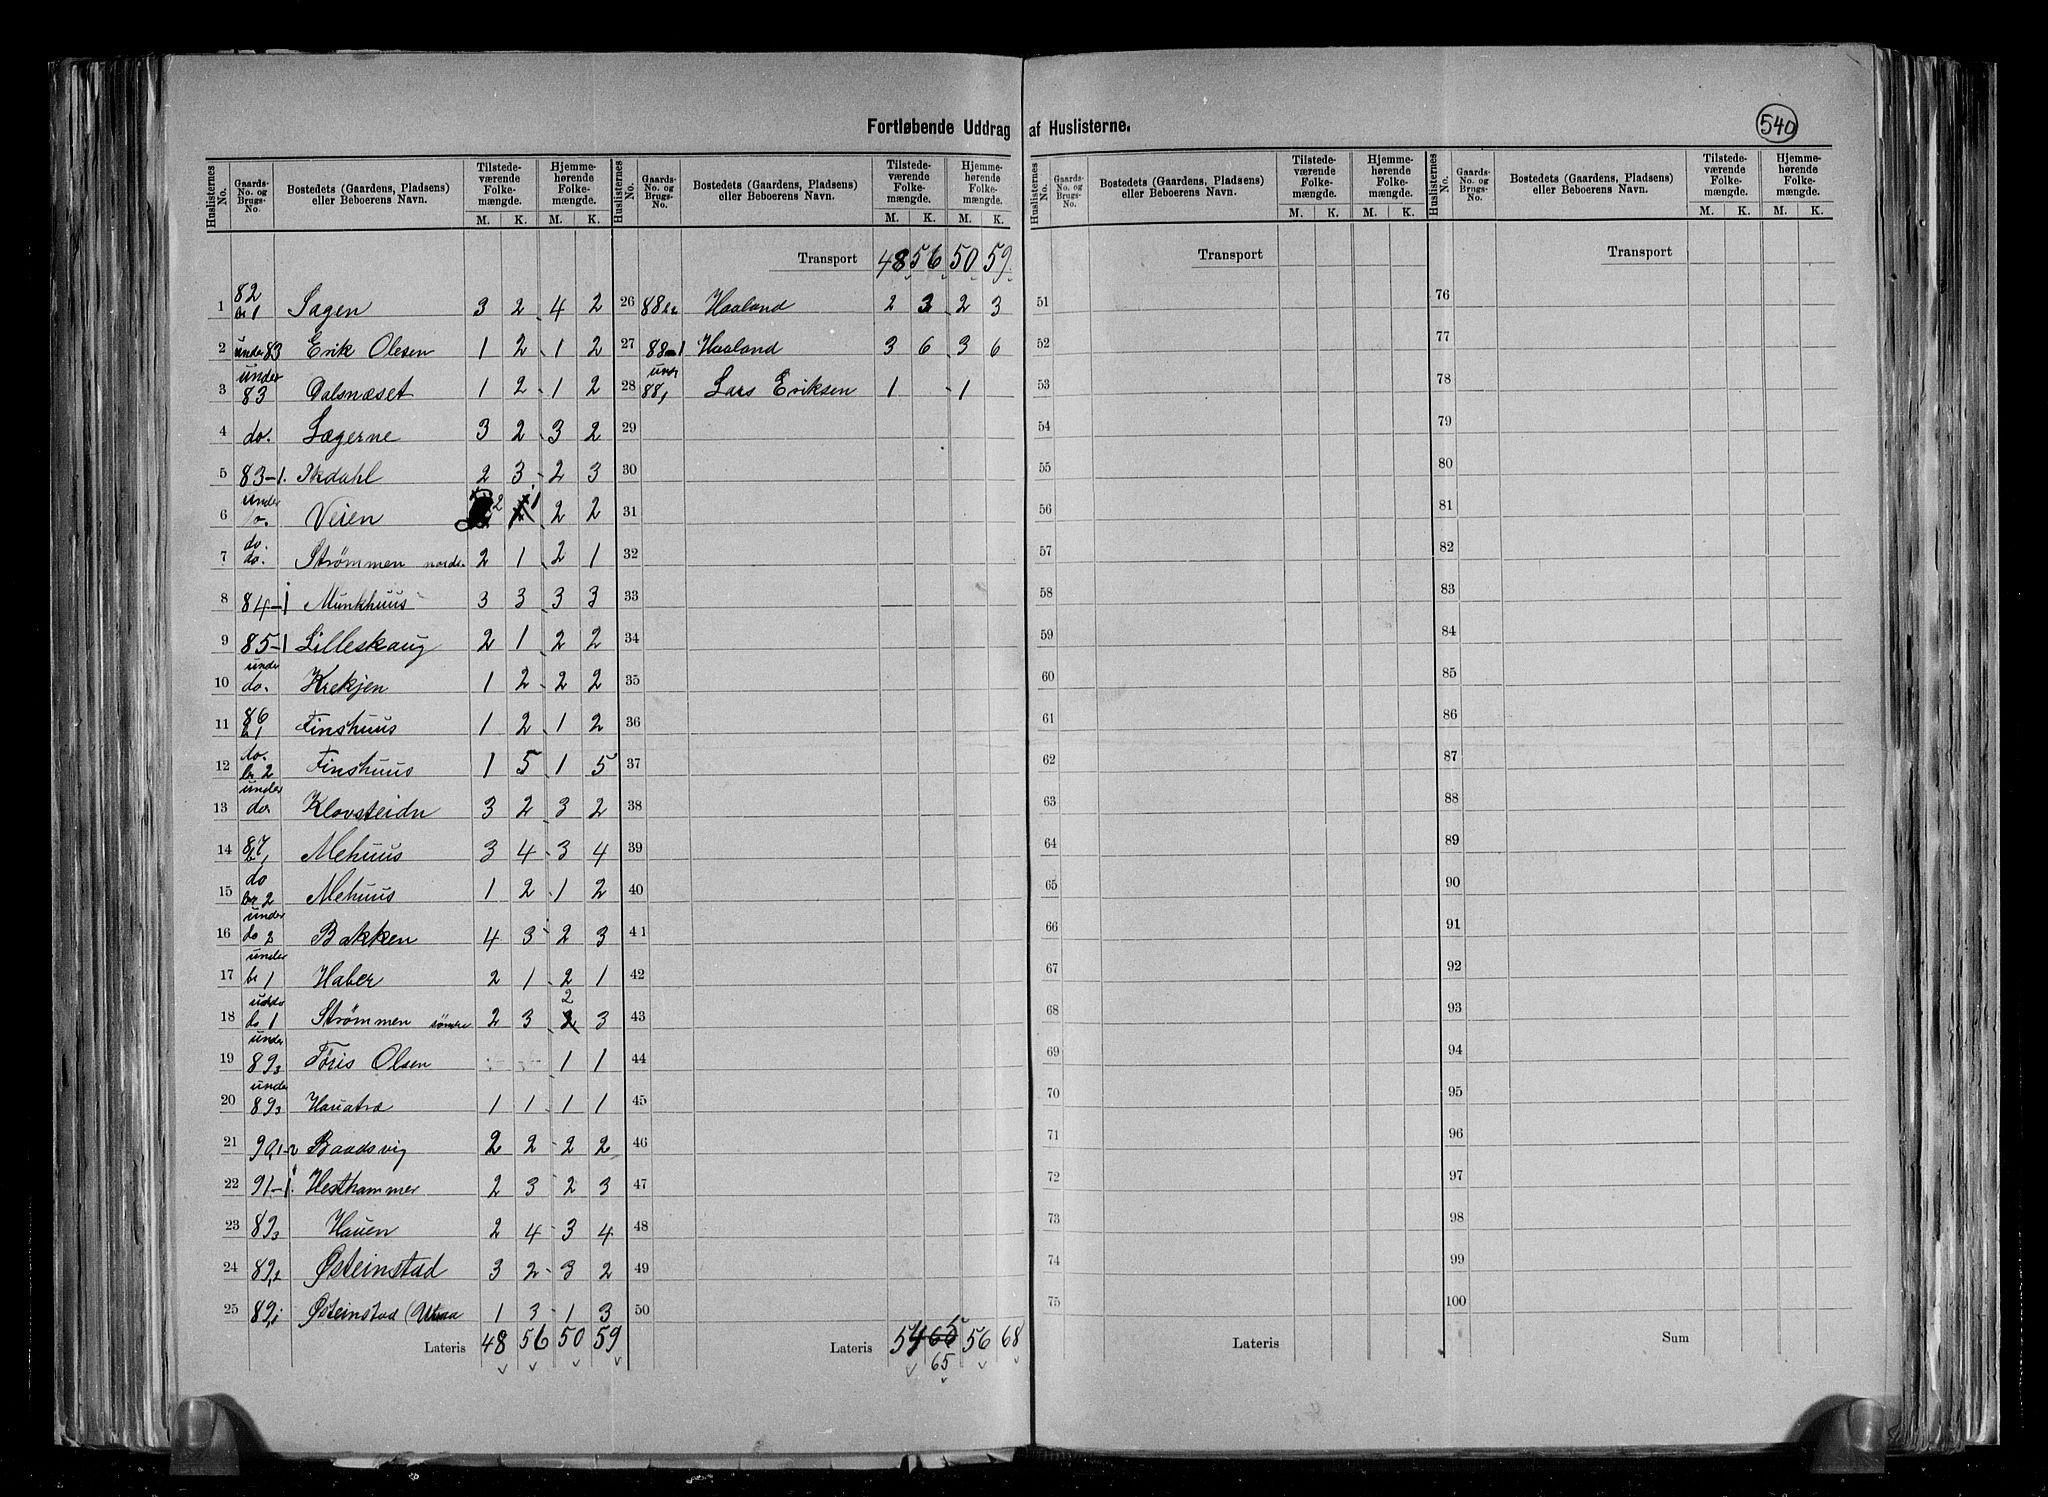 Fortløbende Uddrag af Huslisterne.
540
Huslisternes No. | Gaards-No. og Brugs-No. | Bostedets (Gaardens, Pladsens) eller Beboerens Navn. | Tilstedeværende Folkemængde. M. K. | Hjemmehørende Folkemængde. M. K.
1 82 br 1 Sagen 3 2 4 2
2 under 83 Erik Olesen 1 2 1 2
3 under 83 Dalsnæset 1 2 1 2
4 do. Lægerne 3 2 3 2
5 83-1. Ikdahl 2 3 2 3
6 under do. Veien 2 1 2 2
7 do. do. Strømmen nordr. 2 1 2 1
8 84-1 Munkhuus 3 3 3 3
9 85-1 Lilleskaug 2 1 2 2
10 under do. Krekjen 1 2 2 2
11 86 br 1 Finshuus 1 2 1 2
12 do. br 2 Finshuus 1 5 1 5
13 under do. Klovsteidn 3 2 3 2
14 87 br 1 Mehuus 3 4 3 4
15 do br 2 Mehuus 1 2 1 2
16 under do 2 Bakken 4 3 2 3
17 under br 1 Haber 2 1 2 1
18 under do 1 Strømmen søndre 2 3 2 3
19 under 89,3 Tøris Olsen 1 1
20 under 89,3 1 1 1 1
21 90,1-2 Baadsvig 2 2 2 2
22 91-1. Hesthammer 2 3 2 3
23 89,3 Hauen 2 4 3 4
24 89,2 Østeinstad 3 2 3 2
25 89,1 Østeinstad 1 3 1 3
Lateris 48 56 50 59
Huslisternes No. | Gaards-No. og Brugs-No. | Bostedets (Gaardens, Pladsens) eller Beboerens Navn. | Tilstedeværende Folkemængde. M. K. | Hjemmehørende Folkemængde. M. K.
Transport 48 56 50 59
26 88 br 2 Haaland 2 3 2 3
27 88-1 Haaland 3 6 3 6
28 undr 88,1 Lars Eriksen 1 1
29
30
31
32
33
34
35
36
37
38
39
40
41
42
43
44
45
46
47
48
49
50
Lateris 54 65 56 68
65
Huslisternes No. | Gaards-No. og Brugs-No. | Bostedets (Gaardens, Pladsens) eller Beboerens Navn. | Tilstedeværende Folkemængde. M. K. | Hjemmehørende Folkemængde. M. K.
Transport
51
52
53
54
55
56
57
58
59
60
61
62
63
64
65
66
67
68
69
70
71
72
73
74
75
Lateris
Huslisternes No. | Gaards-No. og Brugs-No. | Bostedets (Gaardens, Pladsens) eller Beboerens Navn. | Tilstedeværende Folkemængde. M. K. | Hjemmehørende Folkemængde. M. K.
Transport
76
77
78
79
80
81
82
83
84
85
86
87
88
89
90
91
92
93
94
95
96
97
98
99
100
Sum